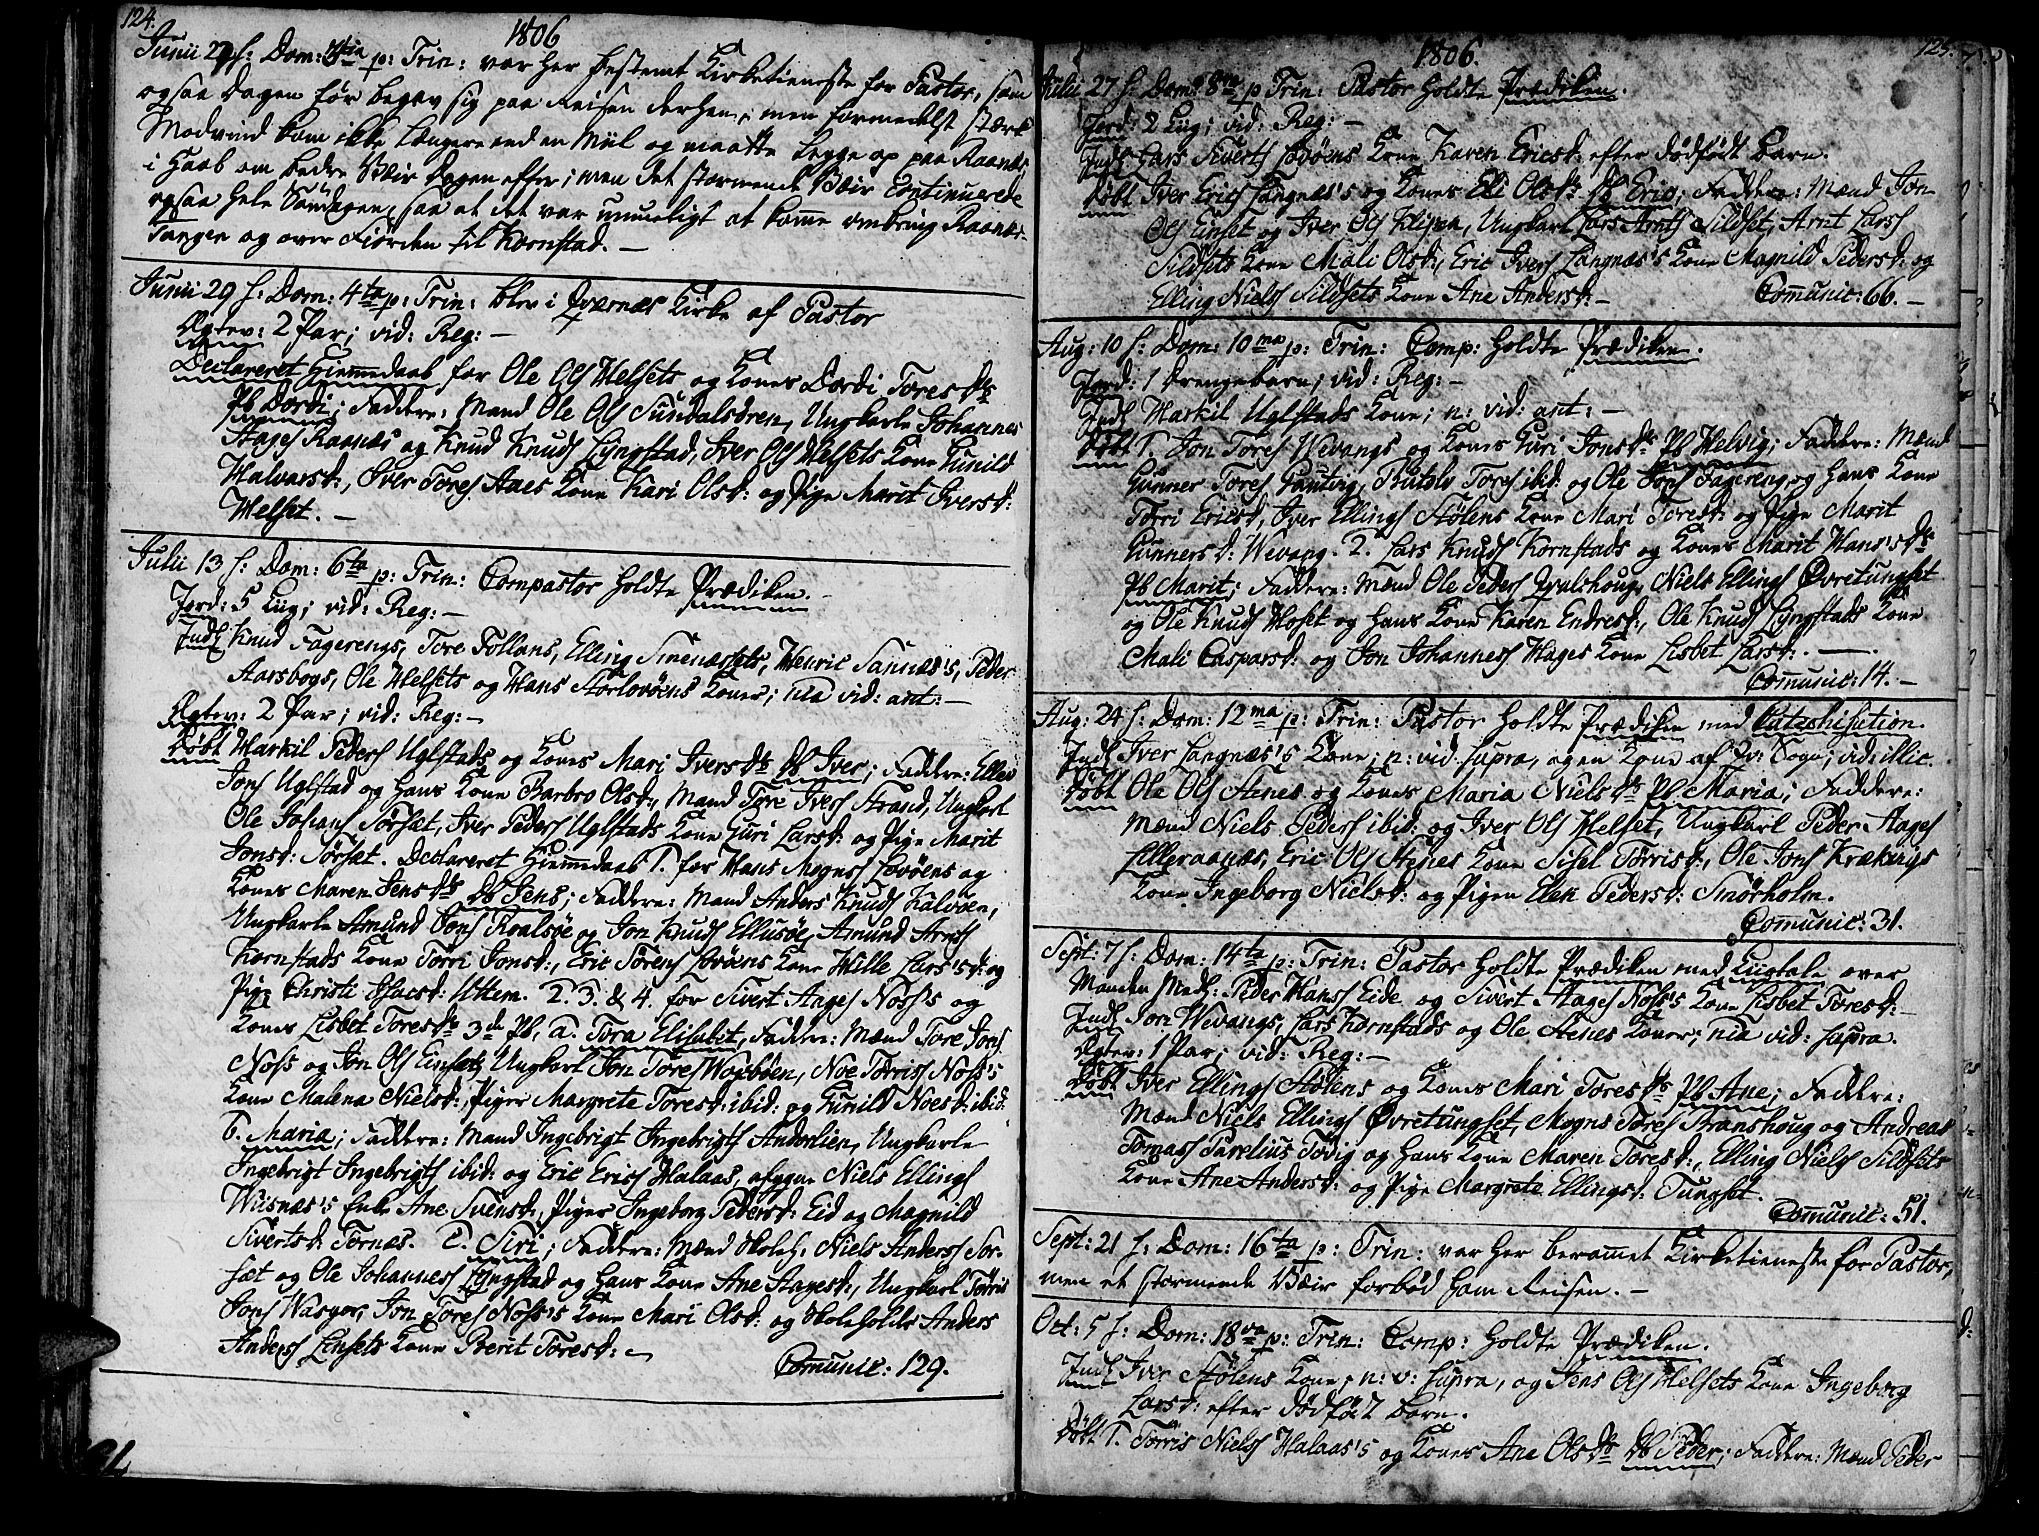 124.
1806
Junii 29 f: Dom: 4tia p: Trin: var her bestemt Kirketieneste for Pastor, som
ogsaa Dagen før begav sig paa Reisen derhen; men formedelst stærk
Modvind kom ikke længere end en Miil og maatte legge op paa Raanæs
i Haab om bedre Veir Dagen efter; men det stormende Veir continuerede
ogsaa hele Søndagen, saa at det var umueligt at komme omkring Raanæs-
Tangen og over Fiorden til Kornstad. —
Junii 29 f: Dom: 4ta p: Trin: blev i Qværnæs Kirke af Pastor
Ægtev: 2 Par; vid: Reg: —
Declareret Hiemmedaab for Ole Ols Helsets og Kones Dordi Tores Dr
Pb Dordi; Faddere: Mænd Ole Ols Sundalsøren, Ungkarle Johannes
Aages Raanæs og Knud Knuds Lyngstad, Iver Ols Helsets Kone Gunild
Halvarsd:, Iver Tores Aaes Kone Kari Olsd: og Pige Marit Iversd:
Helset. —
Julii 13 f: Dom: 6ta p: Trin: Compastor holdte Prædiken. —
Jord: 5 Liig; vid: Reg: —
Indl Knud Fagerengs, Tore Follans, Elling Simenæssets, Henric Sannæs's, Peder
Aarsbogs, Ole Helsets og Hans Storlovøens Koner; nia vid: ant: —
Ægtev: 2 Par; vid: Reg: —
Døbt Markil Peders Uglstads og Kones Mari Ivers Dr Pb Iver; Faddere: Eller
Jons Uglstad og hans Kone Barbro Olsd:, Mænd Tore Ivers Strand, Ungkarl
Ole Johans Sørsæt, Iver Peders Uglstads Kone Guri Larsd: og Pige Marit
Jonsd: Sørsæt. Declareret Hiemmedaab 1. for Hans Mogns Lovøens og
Kones Maren Jens Dr Pb Jens; Faddere: Mænd Anders Knuds Kalvøen,
Ungkarle Amund Jons Roalsøe og Jon Knuds Ellusøe, Amund Arnes
Kornstads Kone Torri Jonsd:, Eric Torens Lovøens Kone Hille Lars'sd: og
Pige Christi Isacsd: Uttem. 2. 3. & 4. for Sivert Aages Noss's og
Kones Lisbet Tores Dr 3de Pb, a. Tora Elisabet, Faddere: Mænd Tore Jons
Noss og Jon Ols Einset, Ungkarl Jon Tores Vogbøen, Noe Torris Noss's
Kone Malena Nielsd: Piger Margrete Toresd: ibid: og Gunild Noesd: ibid:
b. Maria; Faddere: Mænd Ingebrigt Ingebrigts Anderlien, Ungkarle
Ingebrigt Ingebrigts ibid: og Eric Erics Halaas, afgagne Niels Ellings
Wisnæs's Enke Ane Svensd:, Piger Ingeborg Pedersd: Eid og Magnild
Sivertsd: Tornæs. C. Siri; Faddere: Mænd Skoleh: Niels Anders Sør-
sæt og Ole Johannes Lyngstad og hans Kone Ane Aagesd:, Ungkarl Torris
Jons Waagen, Jon Tores Noss's Kone Mari Olsd: og Skoleholder Anders
Anders Linsets Kone Berit Toresd: —
Comunic: 129.
125.
1806.
Julii 27 f: Dom: 8va p Trin: Pastor holdte Prædiken.
Jord: 2 Liig; vid: Reg: —
Indl Lars Siverts Lovøens Kone Karen Ericsd: efter dødfødt Barn.
Døbt Iver Erics Langnæs's og Kones Eli Ols Dr Pb Eric; Faddere: Mænd Jon
Ols Einset og Iver Ols Klipen, Ungkarl Lars Arnts Sildset, Arnt Lars
Sildsets Kone Mali Olsd:, Eric Ivers Langnæs's Kone Magnild Pedersd: og
Elling Niels Sildsets Kone Ane Andersd: —
Comunic: 66. —
Aug: 10 f: Dom: 10ma p: Trin: Comp: holdte Prædiken.
Jord: 1 Drengebarn; vid: Reg: —
Indl Markil Uglstads Kone; n: vid: ant: —
Døbt 1. Jon Tores Wevangs og Kones Guri Jons Dr Pb Helvig; Faddere: Mænd
Gunner Tores Gautvig, Botolv Tores ibid: og Ole Jons Fagereng og hans Kone
Torri Ericsd, Iver Ellings Stølens Kone Mari Toresd: og Pige Marit
Gunnersd: Wevang. 2. Lars Knuds Kornstads og Kones Marit Hans's Dr
Pb Marit; Faddere: Mænd Ole Peders Qvalshoug, Niels Ellings Øvretungset
og Ole Knuds Moset og hans Kone Karen Endresd:, Ole Knuds Lyngstads Kone
Mali Caspersd: og Jon Johannes Hages Kone Lisbet Larsd:. —
Comunic: 14. —
Aug: 24 f: Dom: 12ma p: Trin: Pastor holdte Prædiken med Catechisation.
Indl Iver Langnæs's Kone; n: vid: supra, og en Kone af Qv: Sogn; vid: illic.
Døbt Ole Ols Stenes og Kones Maria Niels Dr Pb Maria; Faddere:
Mænd Niels Peders ibid: og Iver Ols Helset, Ungkarl Peder Aages
Lilleraanæs, Eric Ols Stenes Kone Sisel Torrisd:, Ole Jons Krækvigs
Kone Ingeborg Nielsd: og Pigen Elen Pedersd: Smørholm.
Comunic: 31.
Sept: 7 f: Dom: 14ta p: Trin: Pastor holdte Prædiken med Liigtale over
Manden Medh: Peder Hanss Eide og Sivert Aages Noss's Kone Lisbet Toresd: —
Indl Jon Wevangs, Lars Kornstads og Ole Stenes Koner; nia vid: supra.
Ægtev: 1 Par; vid: Reg: —
Døbt Iver Ellings Stølens og Kones Mari Tores Dr Pb Ane; Faddere:
Mænd Niels Ellings Øvretungset, Mogns Tores Stranshoug og Andreas
Tornass Parelius Tøvig og hans Kone Maren Toresd:, Elling Niels Sildsets
Kone Ane Andersd: og Pige Margrete Ellingsd: Tungset.
Comunic: 51.
Sept: 21 f: Dom: 16ta p: Trin: var her berammet Kirketieneste for Pastor,
men et stormende Veir forbød ham Reisen. —
Oct: 5 f: Dom: 18va p: Trin: Comp: holdte Prædiken.
Indl Iver Stølens Kone; n: v: supra, og Jens Ols Helsets Kone Ingeborg
Larsd: efter dødfødt Barn.
Døbt 1. Torris Niels Halaas's og Kones Ane Ols Dr Pb Peder; Faddere: Mænd Peder